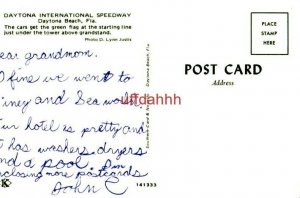 DAYTONA INTERNATIONAL SPEEDWAY
Daytona Beach, Fla.
The cars get the green flag at the starting line
just under the tower above grandstand.
Photo D. Lynn Justis
ear grandmom.
fine we went to
ney and Sea wo
ur hotel is pretty and
has washers, dryers
nd a pool. I'm
nclosing more postcards
John C
K
141333
Daytona Beach, Fla.
uffdahhh
POST CARD
Address
PLACE
STAMP
HERE